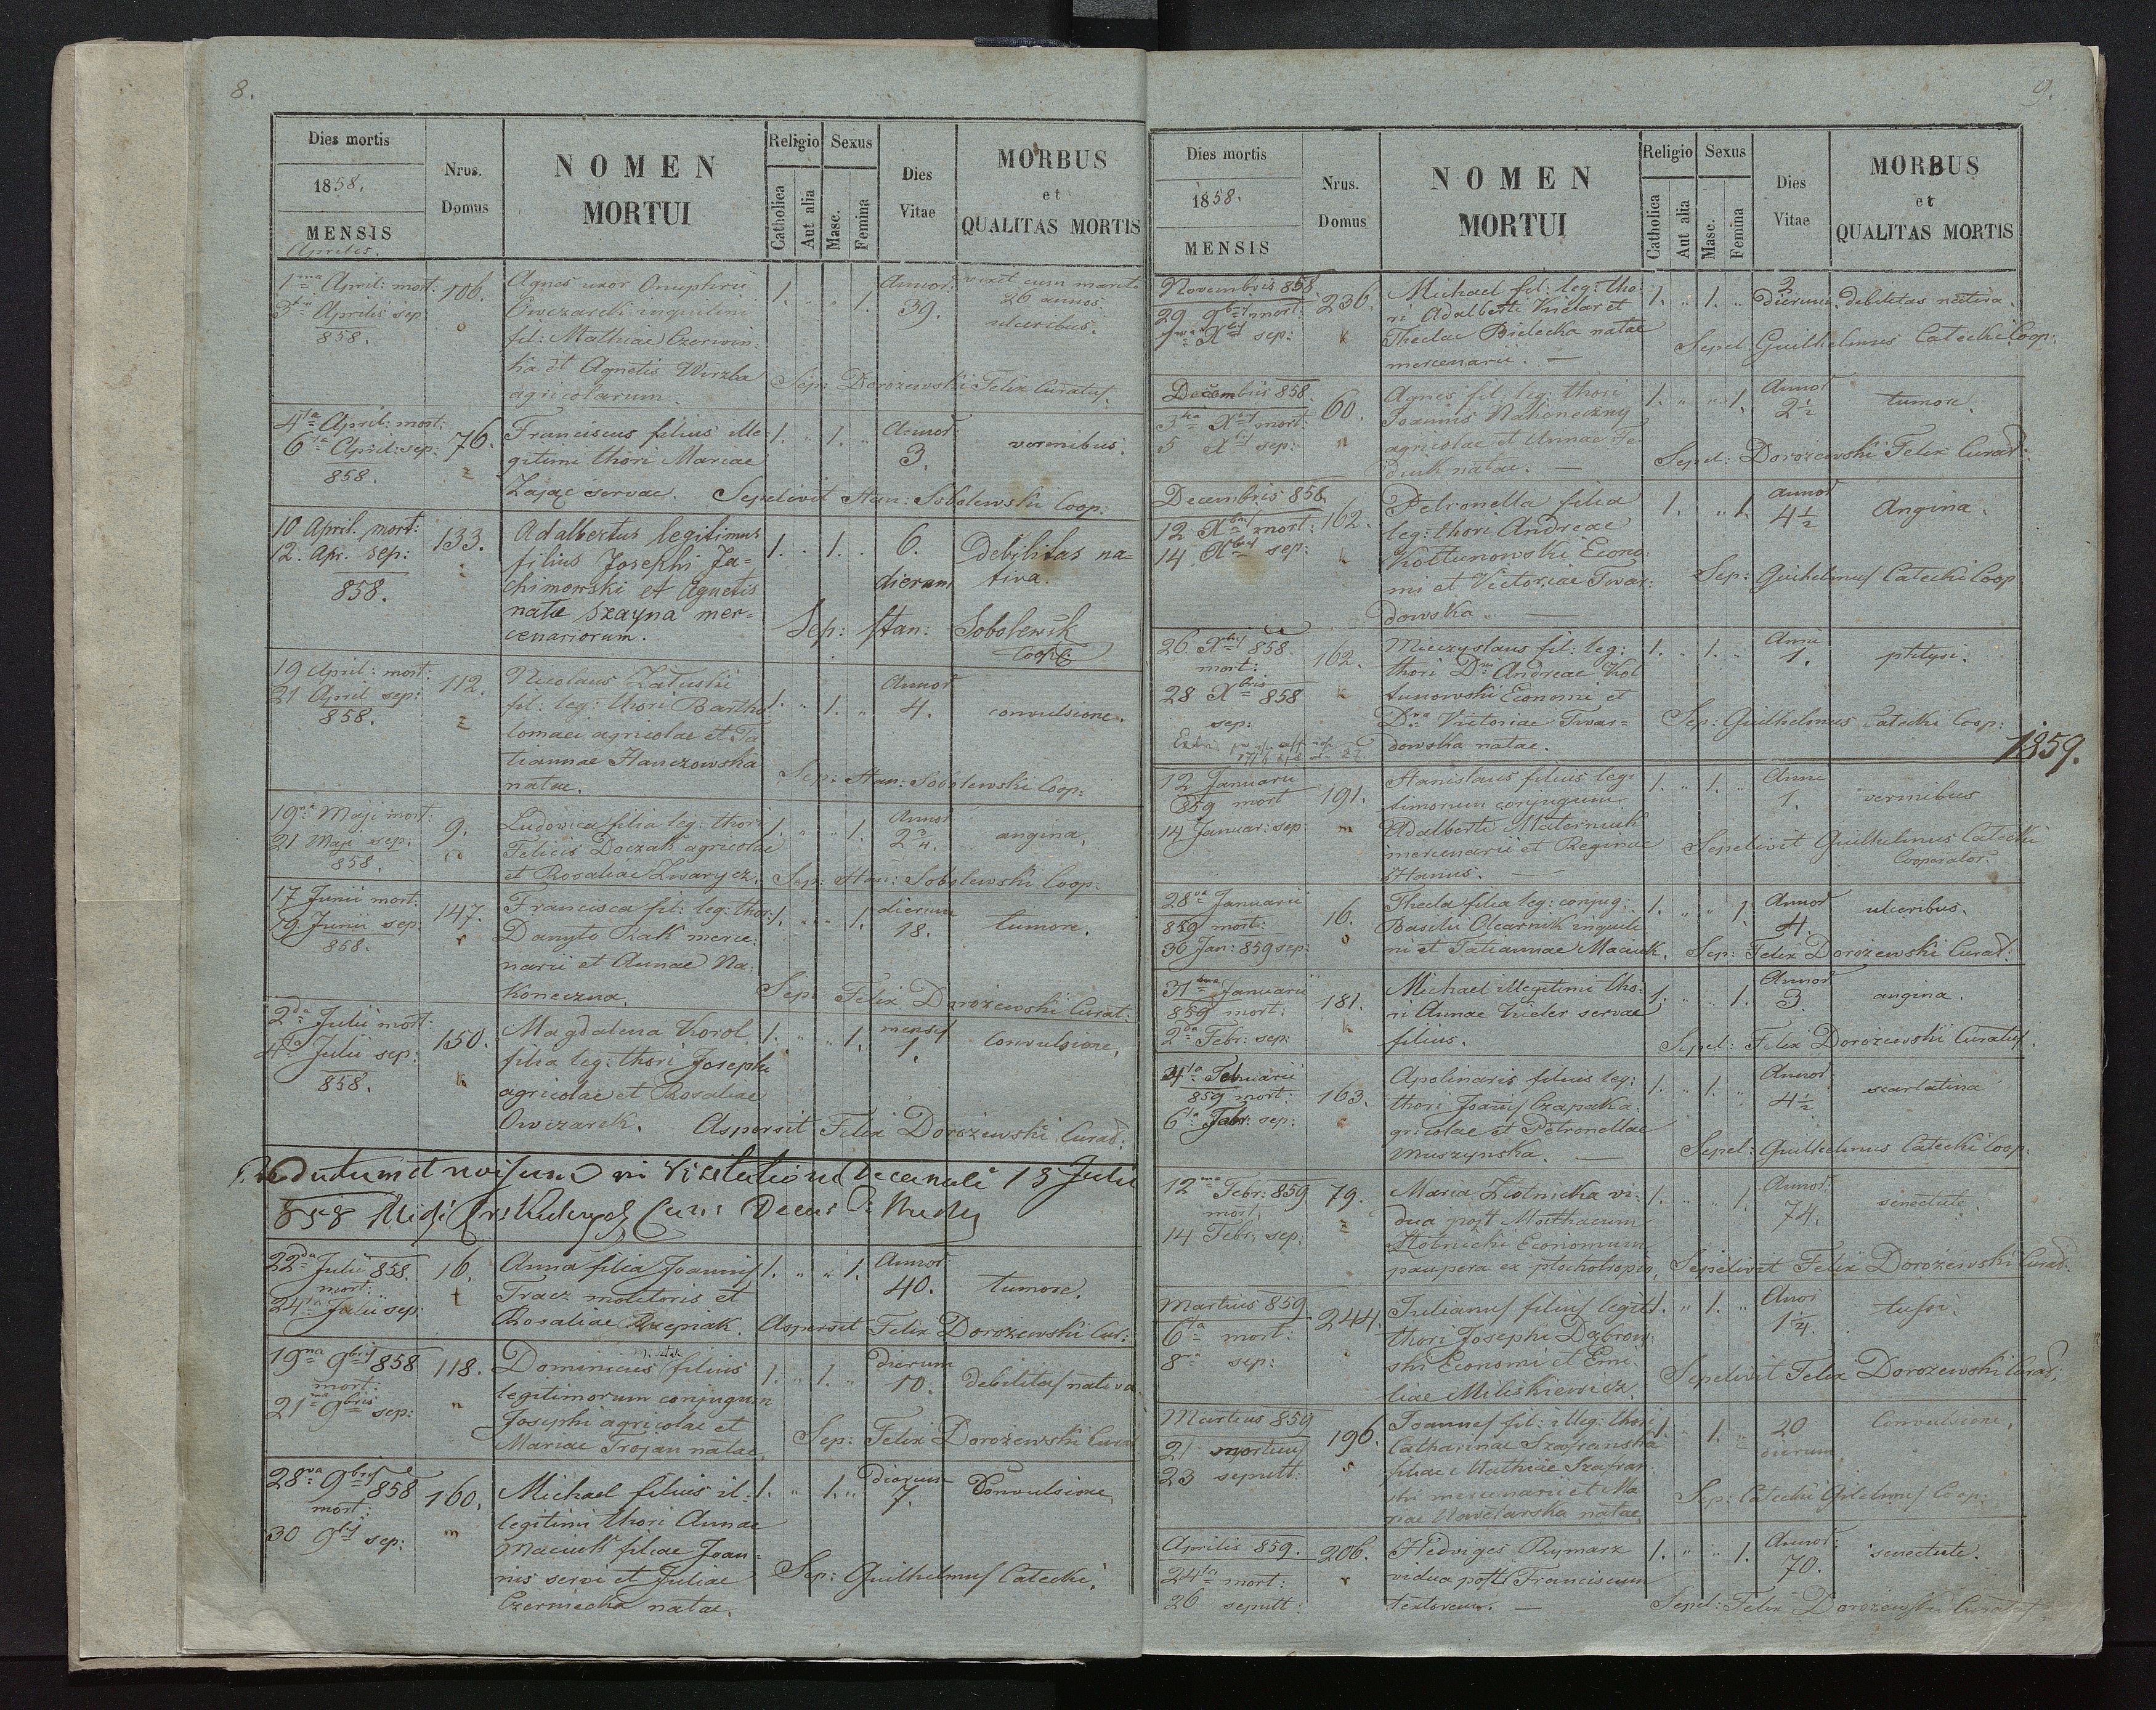 8.
Dies mortis
1858.
MENSIS
Aprilis.
Nrus.
Domus
NOMEN
MORTUI
Religio
Catholica
Aut alia
Sexus
Masc.
Femina
Dies
Vitae
MORBUS
et
QUALITAS MORTIS
1ma April: mort:
3tia Aprilis sep:
858.
106.
o
Agnes uxor Onuphrii
Owczarski inquilini
fil: Mathiae Czerwin:
ka et Agnetis Wirzba
agricolarum.
1. " " 1.
Annor:
39.
vixit cum marito
20 annos
ulceribus.
Sep: Dorożewski Felix Curatus.
4ta April: mort:
6ta April: sep:
858.
76.
z
Franciscus filius ille-
gitimi thori Mariae
Zając servae.
1. " 1. "
Annor:
3.
vermibus.
Sepelivit Stan: Sobolewski Coop:
10 April. mort:
12. Apr. sep:
858.
133.
Adalbertus legitimus
filius Josephi Ja-
chimowski et Agnetis
natae Szayna mer-
cenariorum.
1. " 1. "
6.
dierum
Debilitas na-
tiva.
Sep: Stan: Sobolewsk
Coop:
19 April: mort:
21 April sep:
858.
112.
z
Nicolaus Załuski
fil: leg: thori Bartho
lomaei agricolae et Ta
tiannae Hanczowska
natae.
1. " 1. "
Annor
4.
convulsione.
Sep: Stan: Sobolewski Coop:
19na Maji mort:
21 Maji sep:
858.
9.
Ludovica filia leg: thori
Felicis Doczak agricolae
et Rosaliae Zwarycz.
1. " " 1.
Annor
2 3/4.
angina.
Sep: Stan: Sobolewski Coop:
17 Junii mort:
19 Junii sep:
858.
147.
r
Francisca fil: leg: thor:
Danyło Rak merce:
narii et Annae Na:
koneczna.
1. " " 1.
dierum
18.
tumore.
Sep: Felix Dorożewski Curat:
2da Julii mort:
4ta Julii sep:
858.
150.
k
Magdalena Korol
filia leg: thori Josephi
agricolae et Rosaliae
Owczarik.
1. " " 1.
mensis
1.
Convulsione.
Aspersit Felix Dorożewski Curat:
in Visitatione Decanali 13 Julii
858
22da Julii 858.
mort:
24ta Julii sep:
16.
t
Anna filia Joannis
Tracz molitoris et
Rosaliae Rzepiak.
1. " " 1.
Annor
40.
tumore.
Aspersit Felix Dorożewski Cur:
19na 9bris 858
mort:
21ma 9bris sep:
118.
n
Dominicus filius
legitimorum conjugum
Josephi agricolae et
Mariae Trojan natae.
1. " 1. "
dierum
10.
debilitas nativa
Sep: Felix Dorożewski Curat
28va 9bris 858
mort:
30 9bris sep:
160.
m
Michael filius il-
legitimi thori Annae
Maciuk filiae Joan-
nis servi et Juliae
Czerniecka natae.
1. " 1. "
dierum
7.
Convulsione.
Sep: Guilhelmus Catecki.
9.
Dies mortis
1858.
MENSIS
Nrus.
Domus
NOMEN
MORTUI
Religio
Catholica
Aut alia
Sexus
Masc.
Femina
Dies
Vitae
MORBUS
et
QUALITAS MORTIS
Novembris 858.
29 9bris mort:
1ma Xbris sep:
236.
k
Michael fil: leg: tho-
ri Adalberti Kielar et
Theclae Bielecka natae
mercenarii. —
1. " 1. "
2
dierum.
debilitas nativa.
Sepel: Guilhelmus Catecki Coop:
Decembris 858.
3tia Xbris mort:
5 Xbris sep:
60.
n
Agnes fil: leg: thori
Joannis Nakoneczny
agricolae et Annae Fe
diuk natae. —
1. " " 1.
Annor
2 1/2
tumore.
Sepel: Dorożewski Felix Curat:
Decembris 858.
12 Xbris mort:
14 Xbris sep:
162.
k
Petronella filia
leg: thori Andreae
Kołtunowski Econo:
mi et Victoriae Twar:
dowska. —
1. " 1.
Annor
4 1/2
Angina.
Sep: Guilhelmus Catecki Coop
26 Xbris 858.
mort:
28 Xbris 858
sep:
162.
k
Mieczyslaus fil: leg:
thori Dni Andreae Koł
tunowski Economi et
Dnae Victoriae Twar=
dowska natae.
1. " 1. "
Anni
1.
phtysi.
Sep: Guilhelmus Catecki Coop:
1859.
12 Januarii
859 mort
14 Januar: sep:
191.
m
Stanislaus filius legi
timorum conjugum
Adalberti Materniuk
mercenarii et Reginae
Hanus. —
1. " 1. "
Anni
1.
vermibus
Sepelivit Guilhelmus Catecki
Cooperator.
28va Januarii
859 mort:
30 Jan: 859 sep:
16.
o
Thecla filia leg: conjug:
Basilii Olearnik inquili
ni et Tatiannae Maciuk.
1. " " 1.
Annor
4.
ulceribus.
Sep: Felix Dorożewski Curat:
31ma Januarii
859 mort:
2da Febr: sep:
181.
k
Michael illegitimi tho:
ri Annae Kieler servae
filius.
1. " " 1.
Annor
3.
angina.
Sepel: Felix Dorożewski Curatus.
4ta Februarii
859 mort:
6ta Febr: sep:
163.
c
Apolinaris filius leg:
thori Joannis Czapaka a:
gricolae et Petronellae
Muszynska. —
1. " 1. "
Annor
4 1/2
scarlatina
Sepel: Guilhelmus Catecki Coop:
12ma Febr: 859
mort.
14 Febr. sep:
79.
z
Maria Złotnicka vi-
dua post Mathaeum
Złotnicki Economum
paupera ex ptochotropio.
1. " " 1.
Annor:
74.
senectute.
Sepelivit Felix Dorożewski Curat:
Martius 859
6ta mort:
8va sep:
244.
Julianus filius legit:
thori Josephi Dąbrow
ski Economi et Emi
liae Miliskiewicz.
1. " 1. "
Anni
1 1/4.
tussi.
Sepelivit Felix Dorożewski Curat.
Martius 859
21 mortuus
23 sepult:
196.
s
Joannes fil: illeg: thori
Catharinae Szafranska
filiae Mathiae Szafran
ski mercenarii et Ma
riae Nowetarska natae.
1. " 1. "
20
dierum
Convulsione.
Sep: Catecki Guilelmus Coop:
Aprilis 859.
24ta mort:
26 sepult:
206.
r
Hedviges Rymarz
vidua post Franciscum
textorem. —
1. " " 1.
Annor:
70.
senectute.
Sepel: Felix Dorożewski Curatus.